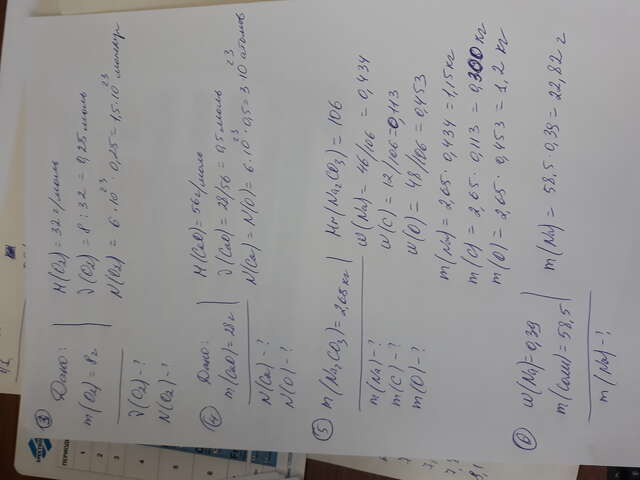 ③
Дано:
m(O₂) = 8г
ν(O₂) - ?
N(O₂) - ?
M(O₂) = 32 г/моль
ν(O₂) = 8 : 32 = 0,25 моль
N(O₂) = 6 · 10²³ · 0,25 = 1,5 · 10²³ молекул
④
Дано:
m(CaO) = 28г
N(Ca) - ?
N(O) - ?
M(CaO) = 56 г/моль
ν(CaO) = 28/56 = 0,5 моль
N(Ca) = N(O) = 6 · 10²³ · 0,5 = 3 · 10²³ атомов
⑤
m(Na₂CO₃) = 2,65 кг
m(Na) - ?
m(C) - ?
m(O) - ?
Mr(Na₂CO₃) = 106
w(Na) = 46/106 = 0,434
w(C) = 12/106 = 0,113
w(O) = 48/106 = 0,453
m(Na) = 2,65 · 0,434 = 1,15 кг
m(C) = 2,65 · 0,113 = 0,300 кг
m(O) = 2,65 · 0,453 = 1,2 кг
⑥
w(Na) = 0,39
m(соли) = 58,5
m(Na) - ?
m(Na) = 58,5 · 0,39 = 22,82 г